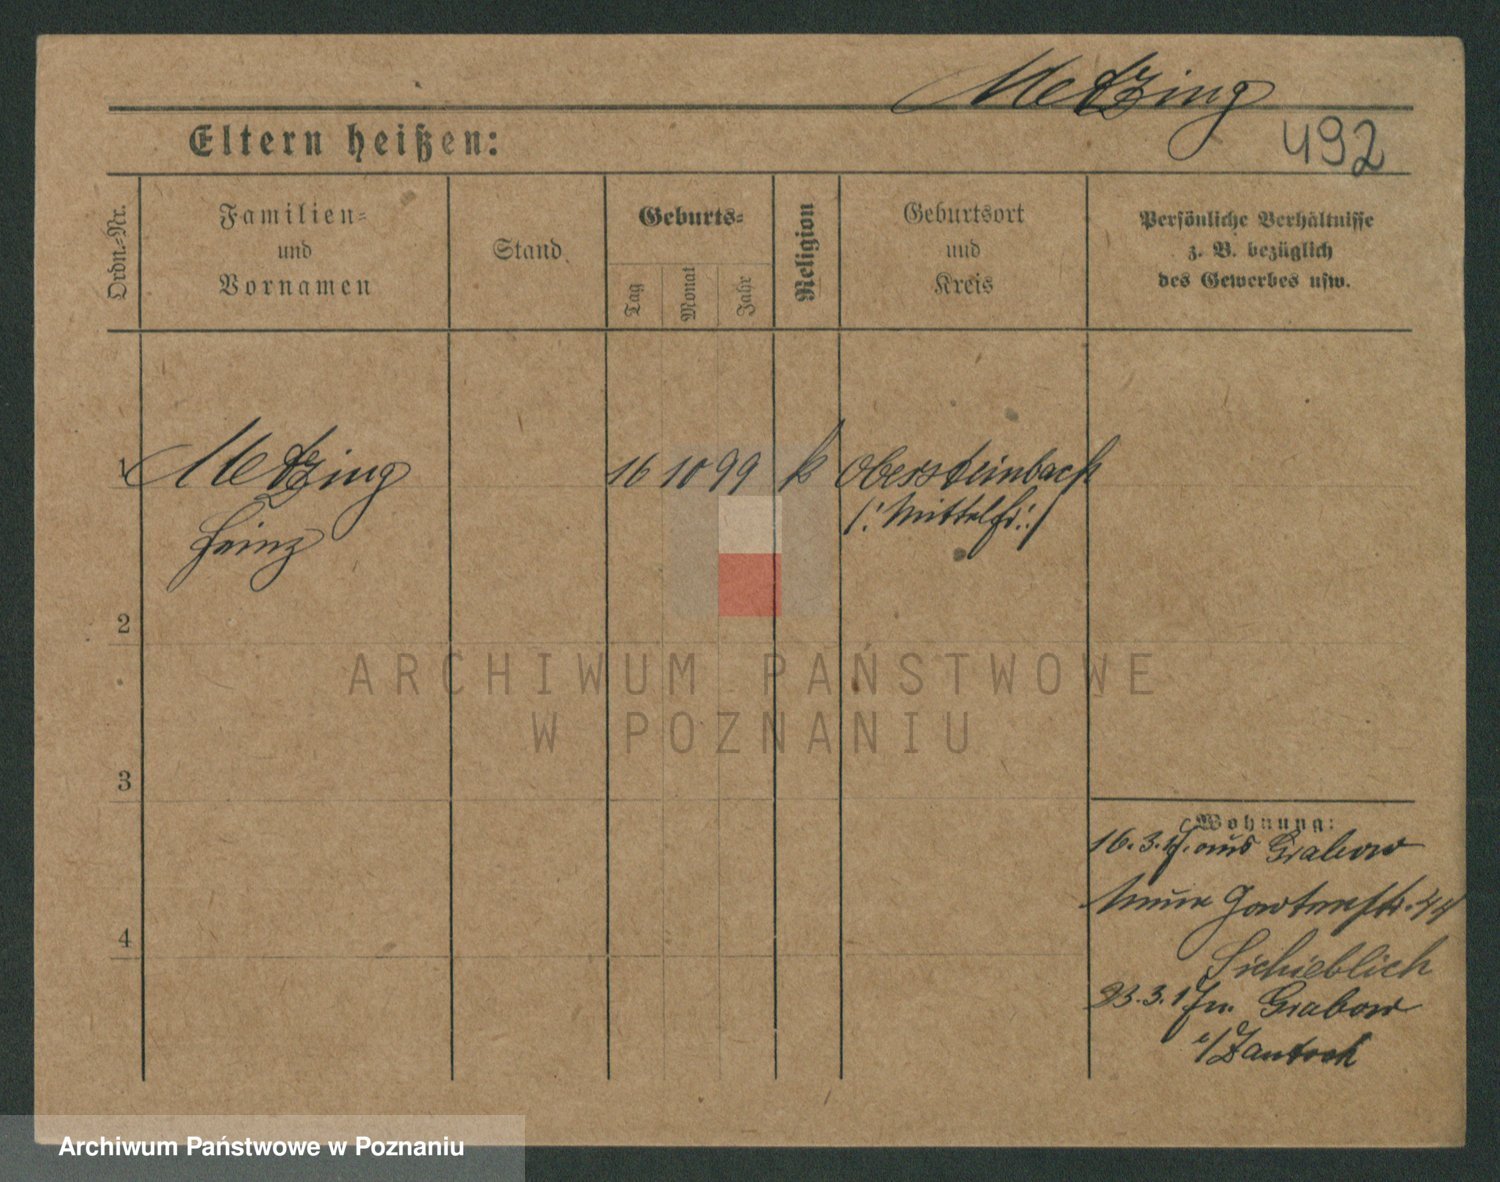 Metzing
492
Eltern heißen:
Ordn.-Nr.
Familien-
und
Vornamen
Stand
Geburts-
Tag
Monat
Jahr
Religion
Geburtsort
und
Kreis
Persönliche Verhältnisse
z. B. bezüglich
des Gewerbes usw.
1 Metzing 16 10 99 k Obersteinbach
Heinz (: Mittelfr :)
2
3
4
Wohnung:
16.3.17. aus Grabow
Neue Gartenstr. 44
23.3.17 n. Grabow
Zantoch
ARCHIWUM PAŃSTWOWE
W POZNANIU
Archiwum Państwowe w Poznaniu